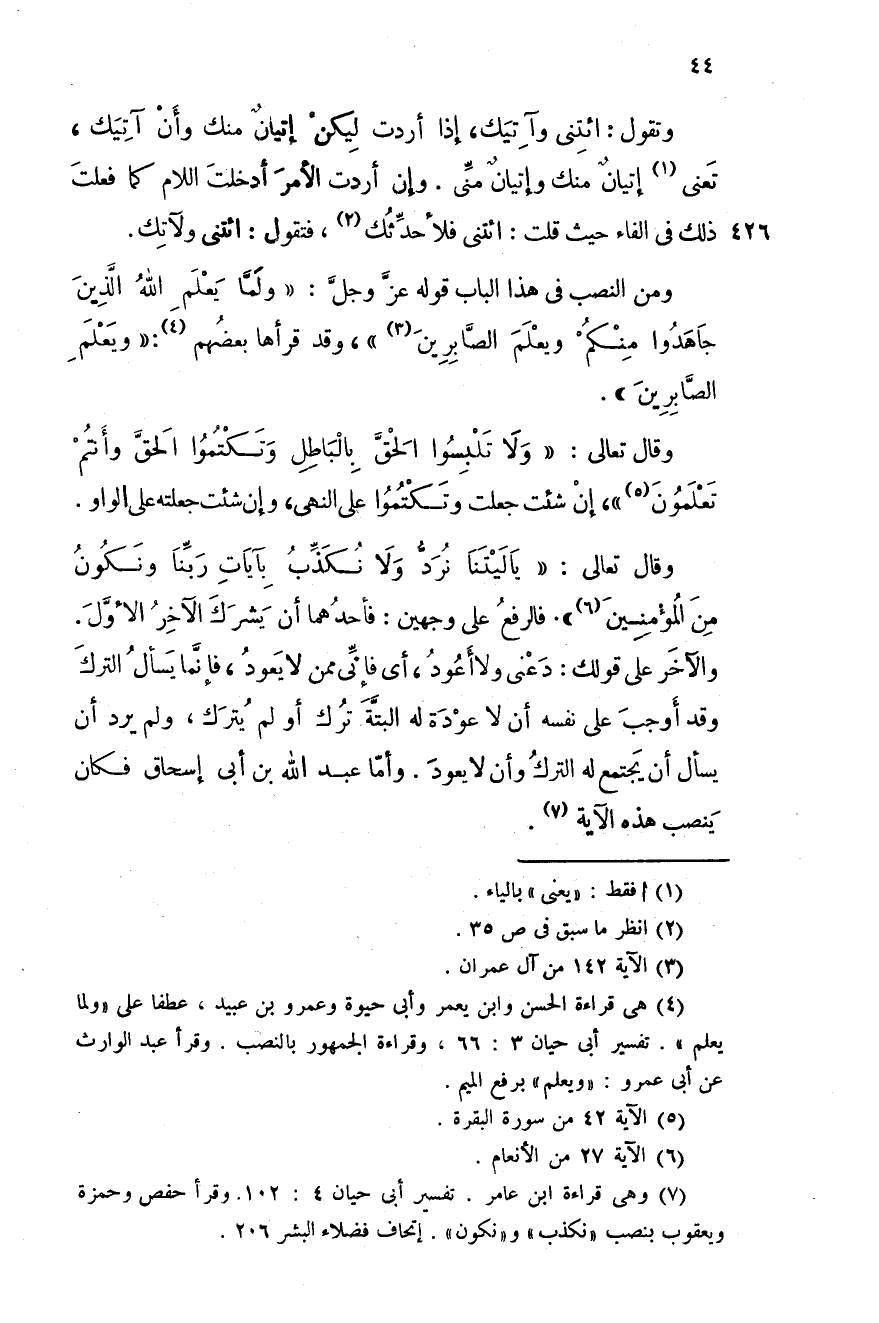 ٤٤
وتقول : ائتِنى وآتِيَك، إذا أردت لِيكنْ إتيانٌ منك وأنْ آتِيَك ،
تَعنى (١) إتيانٌ منك وإتيانٌ منِّى . وإن أردت الأمرَ أدخلتَ اللام كما فعلتَ
٤٢٦ ذلك فى الفاء حيث قلت : ائتنى فلأحدِّثْك (٢) ، فتقول : ائتنى ولآتِك.
ومن النصب فى هذا الباب قوله عزَّ وجلَّ : « ولَمَّا يَعْلَمِ اللهُ الَّذِينَ
جَاهَدُوا مِنْكُمْ ويعلَمَ الصَّابِرِينَ (٣) » ، وقد قرأها بعضُهم (٤) : « ويَعْلَمِ
الصَّابِرِينَ » .
وقال تعالى : « وَلَا تَلْبِسُوا الحَقَّ بِالْبَاطِلِ وَتَكْتُمُوا الحَقَّ وأَنتُمْ
تَعْلَمُونَ (٥) »، إنْ شئت جعلت وتَكْتُمُوا على النهى، وإن شئت جعلته على الواو .
وقال تعالى : « يَالَيْتَنَا نُرَدُّ وَلَا نُكَذِّبُ بِآيَاتِ رَبِّنَا ونَكُونُ
مِنَ المُؤمنِينَ (٦) ». فالرفعُ على وجهين : فأحدُهما أن يَشرَكَ الآخِرُ الأوَّلَ.
والآخَر على قولك : دَعْنى ولا أَعُودُ ، أى فإنِّى ممن لا يَعودُ ، فإنَّما يَسأل ُ التركَ
وقد أَوجبَ على نفسه أن لا عَوْدَة له البتَّةَ تُرك أو لم يُترَك ، ولم يرد أن
يسأل أن يَجتمع له التركُ وأن لا يعودَ . وأمّا عبد الله بن أبى إسحاق فكان
يَنصب هذه الآية (٧) .
(١) ا فقط : «يعنى» بالياء .
(٢) انظر ما سبق فى ص ٣٥ .
(٣) الآية ١٤٢ من آل عمران .
(٤) هى قراءة الحسن وابن يعمر وأبى حيوة وعمرو بن عبيد ، عطفا على «ولما
يعلم » . تفسير أبى حيان ٣ : ٦٦ ، وقراءة الجمهور بالنصب . وقرأ عبد الوارث
عن أبى عمرو : «ويعلم» برفع الميم .
(٥) الآية ٤٢ من سورة البقرة .
(٦) الآية ٢٧ من الأنعام .
(٧) وهى قراءة ابن عامر . تفسير أبى حيان ٤ : ١٠٢. وقرأ حفص وحمزة
ويعقوب بنصب «نكذب» و«نكون» . إتحاف فضلاء البشر ٢٠٦ .